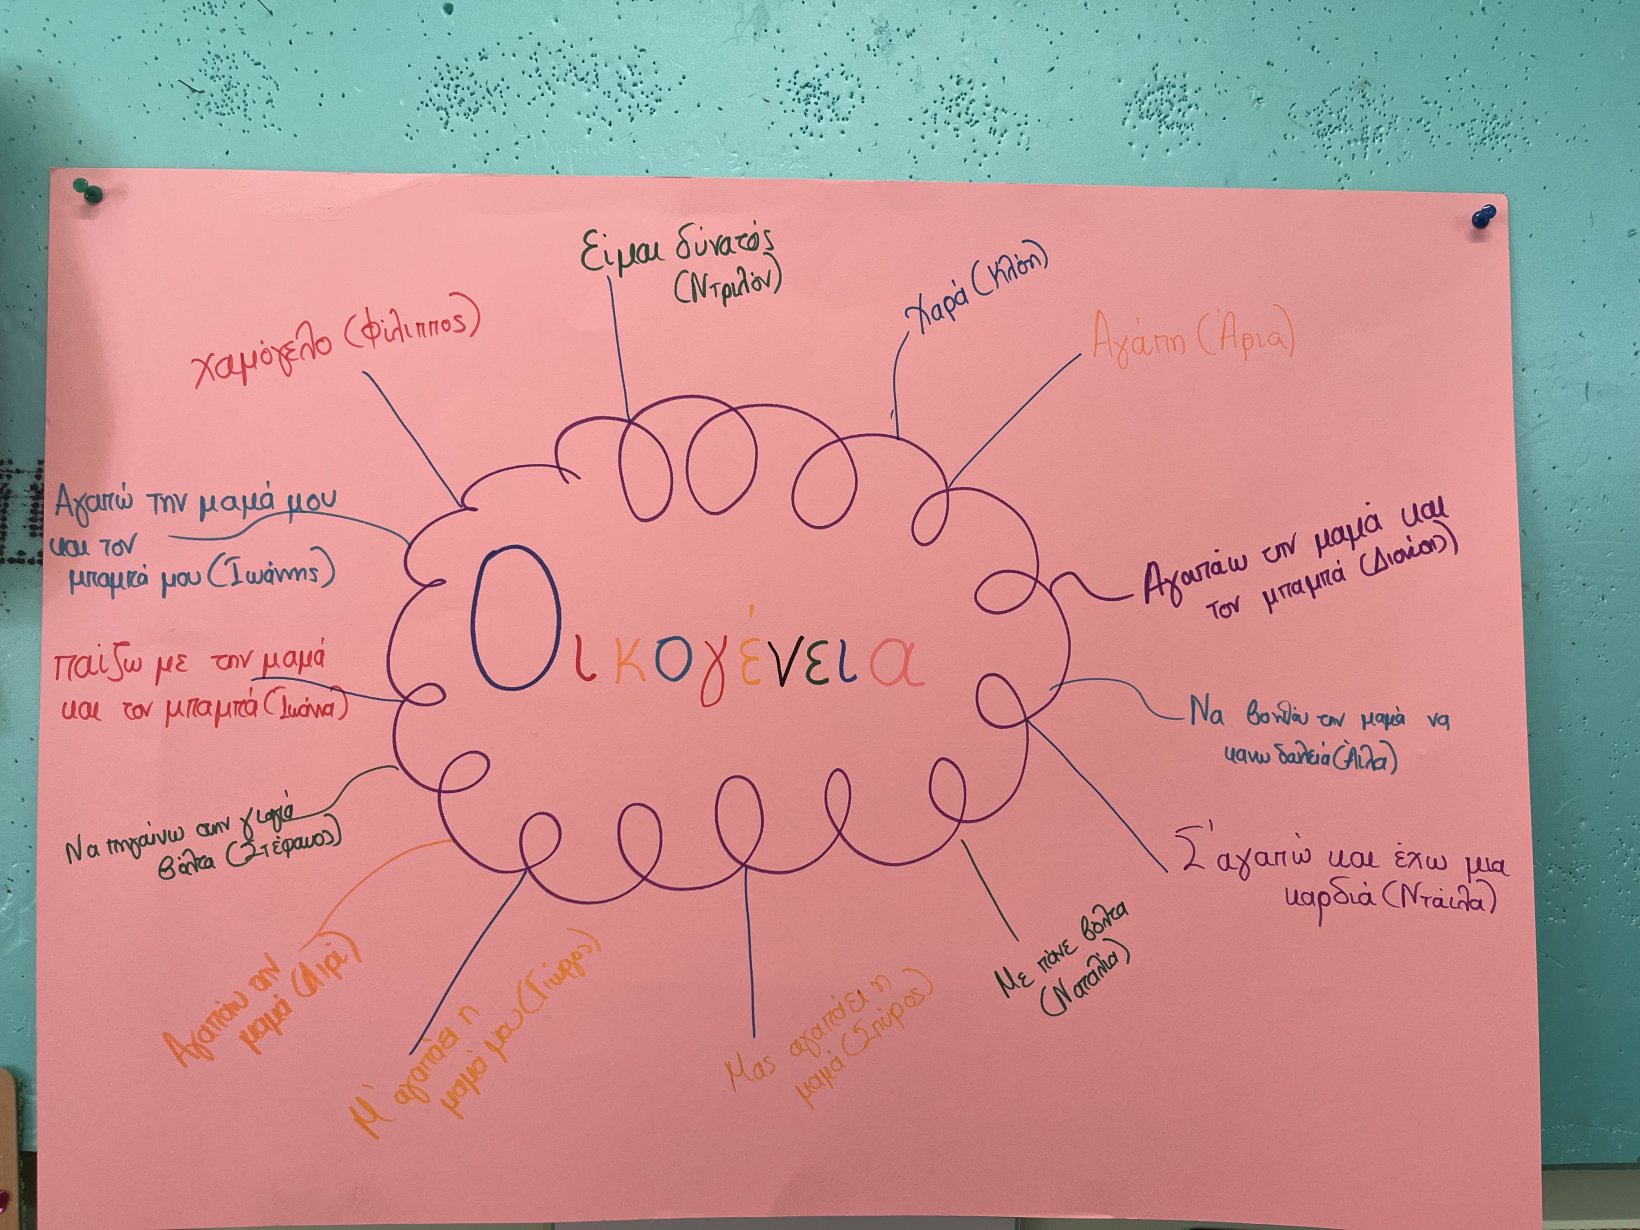 Είμαι δύνατός
(Ντριλόν)
Χαρά (Κλόη)
Αγάπη (Άρια)
χαμόγελο (Φίλιππος)
Αγαπώ την μαμά μου
και τον
μπαμπά μου (Ιωάννης)
Αγαπάω την μαμά και
τον μπαμπά (Διονύσης)
Οικογένεια
παίζω με την μαμά
και τον μπαμπά (Ιωάννα)
Να βοηθάω την μαμά να
κανω δουλειά (Άιλα)
Να πηγαίνω στην γιαγιά
βόλτα (Στέφανος)
Σ'αγαπώ και έχω μια
καρδιά (Ντάιλα)
Με πάνε βόλτα
(Ναταλία)
Αγαπάω την
μαμά
Μ' αγαπάει η
μαμά μου (Γιώργος)
Μας αγαπάει η
μαμά (Σπύρος)